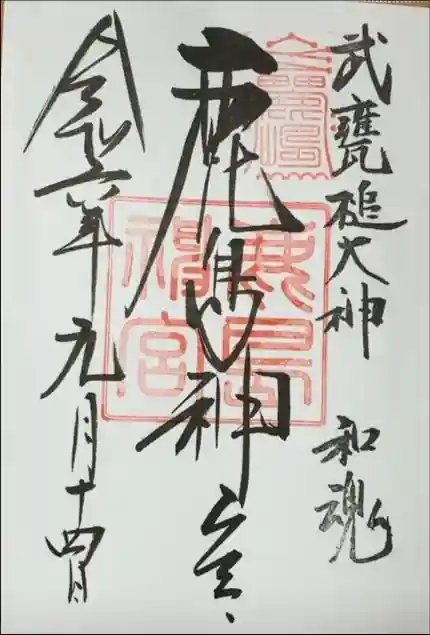 武甕槌大神 和魂
鹿島神宮
令和六年九月十四日
鹿島
神宮